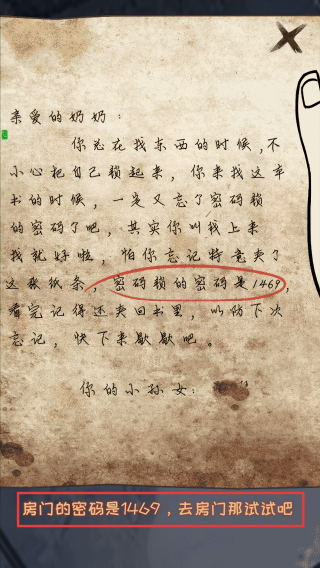 亲爱的奶奶：
你总在找东西的时候，不
小心把自己赖起来，你来找这本
书的时候，一定又忘了密码赖
的密码了吧，其实你叫我上来
找就好啦，怕你忘记特意夹了
这张纸条，密码赖的密码是1469，
看完记得还夹回书里，以防下次
忘记，快下来歇歇吧。
你的小孙女：
房门的密码是1469，去房门那试试吧